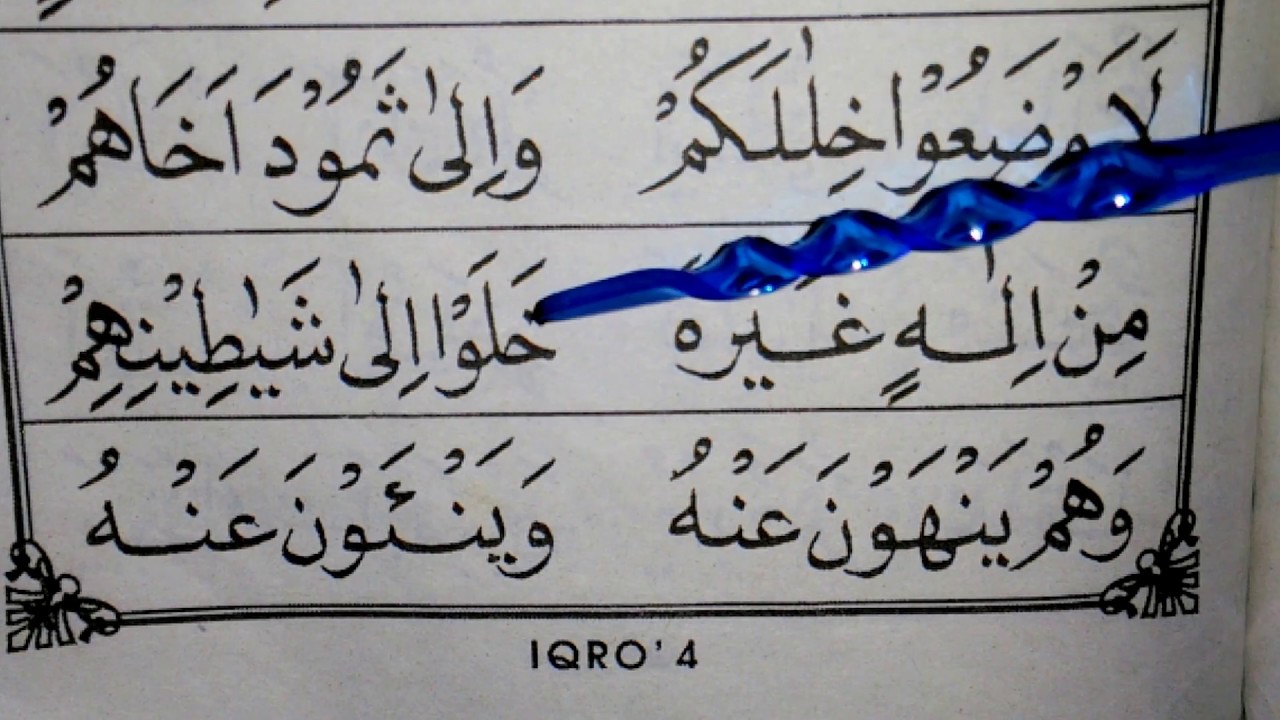 لَا وَضَعُوْا خِلٰلَكُمْ وَاِلٰى ثَمُوْدَ اَخَاهُمْ
مِنْ اِلٰهٍ غَيْرُهُ خَلَوْا اِلٰى شَيٰطِيْنِهِمْ
وَهُمْ يَنْهَوْنَ عَنْهُ وَيَنْئَوْنَ عَنْهُ
IQRO' 4